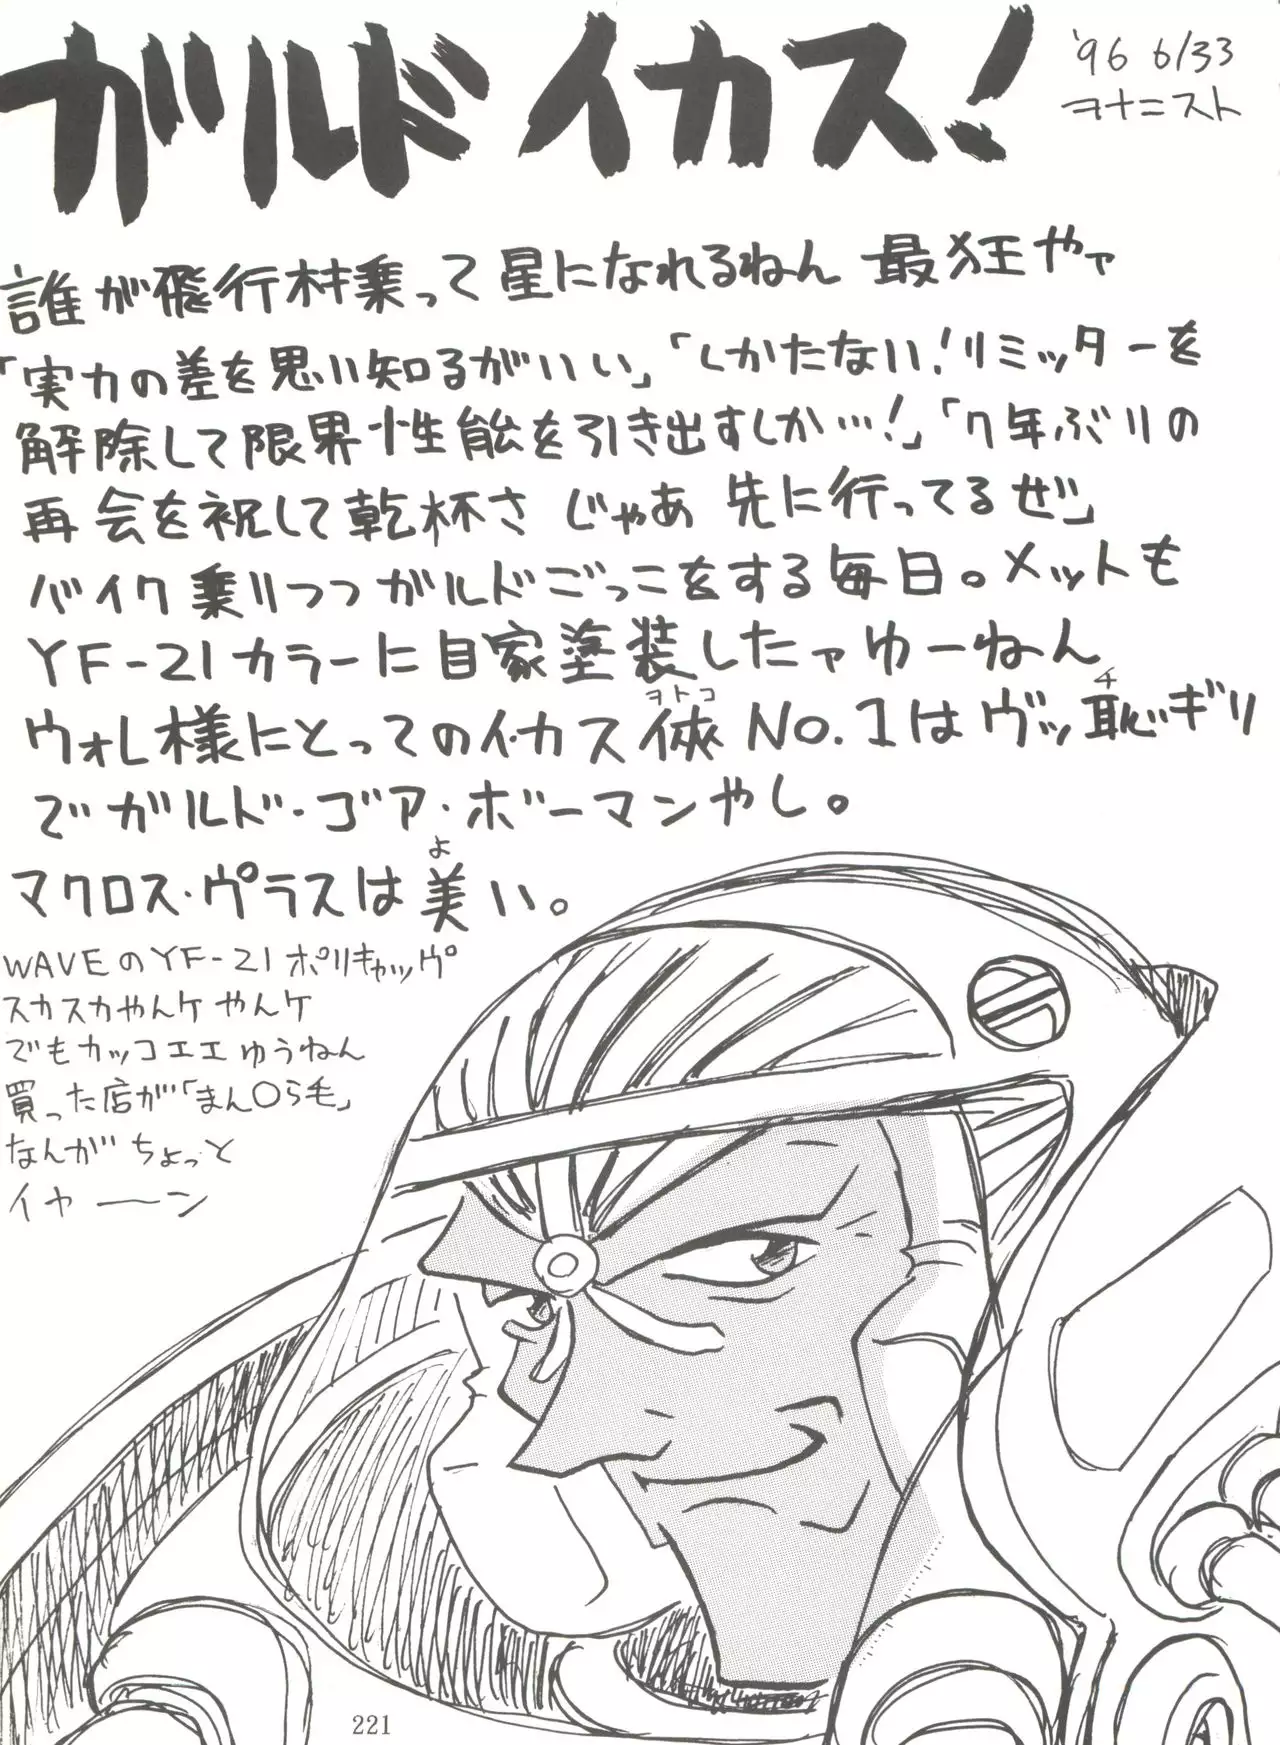 ガルドイカス!
'96 6/33
ヲナニスト
誰が飛行材乗って星になれるねん 最狂やァ
「実力の差を思い知るがいい」「しかたない!リミッターを
解除して限界性能を引き出すしか…!」「7年ぶりの
再会を祝して乾杯さ じゃあ 先に行ってるぜ」
バイク乗りつつガルドごっこをする毎日。メットも
YF-21カラーに自家塗装したャゆーねん
ヲトコ チ
ウォレ様にとってのイ・カス俠 No.1はヴッ恥ギリ
でガルド・ゴア・ボーマンやし。
よ
マクロス・プラスは美い。
WAVEのYF-21 ポリキャップ
スカスカやんケ やんケ
でもカッコエエ ゅうねん
買った店が「まん〇ら毛」
なんが ちょっと
イヤーーン
221